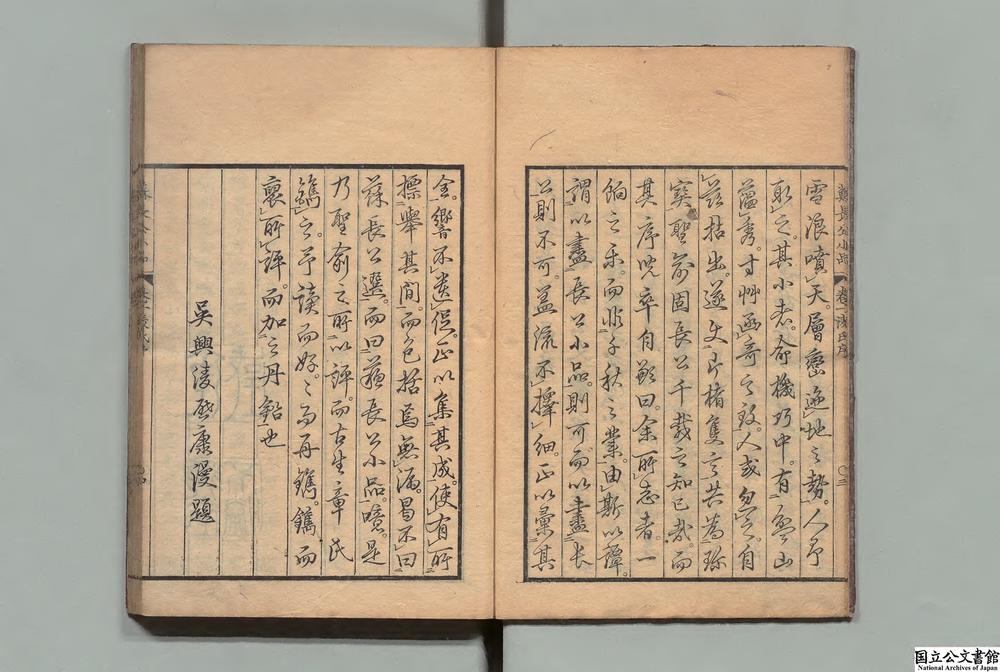 雪浪噴天層巒遞地之勢人爭
取之其小者俞機巧中有
蘊秀寸艸涵奇之致人或勿之自
茲拈出遂使片楮隻言共為珍
寳聖俞固長公千載之知已哉而
其序說卒自歉曰余所志者一
餉之樂而非千秋之業由斯以譚
謂以盡長公小品則可而以盡長
公則不可蓋流不擇細正以彙其
全響不遺促正以集其成使有所
標舉其間而包括焉無漏曷不曰
蘇長公選而曰蘇長公小品噫是
乃聖俞之所以評而古生章氏
鐫之予讀而好之而再鐫鐫而
裒所評而加之丹鉛也
吳興凌啟康漫題
蘇長公小品
卷一 凌氏序
国立公文書館
National Archives of Japan